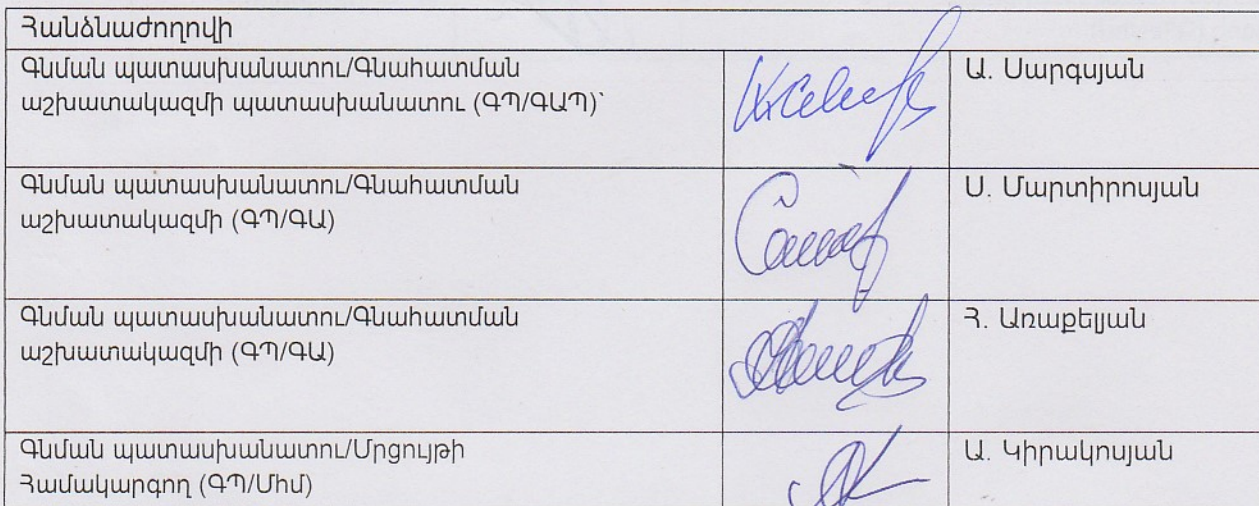 Հանձնաժողովի
Գնման պատասխանատու/Գնահատման
աշխատակազմի պատասխանատու (ԳՊ/ԳԱՊ)`
Ա. Սարգսյան
Գնման պատասխանատու/Գնահատման
աշխատակազմի (ԳՊ/ԳԱ)
Ս. Մարտիրոսյան
Գնման պատասխանատու/Գնահատման
աշխատակազմի (ԳՊ/ԳԱ)
Հ. Առաքելյան
Գնման պատասխանատու/Մրցույթի
Համակարգող (ԳՊ/Մհմ)
Ա. Կիրակոսյան